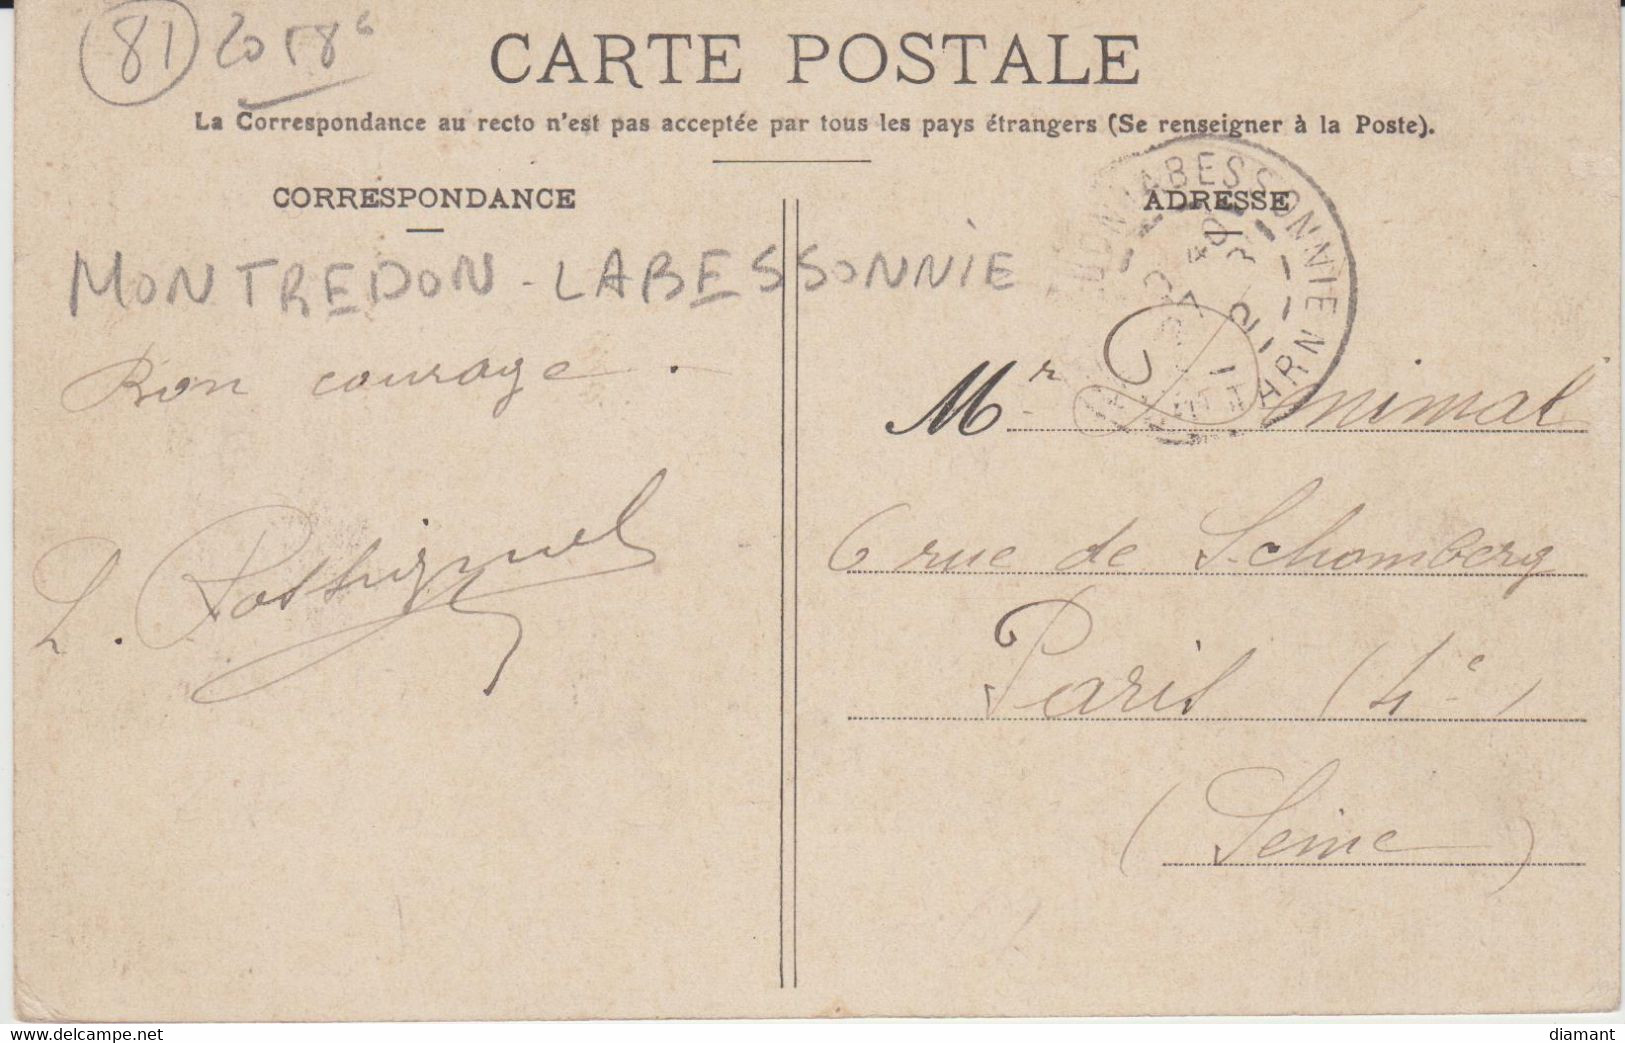 81 20
CARTE POSTALE
La Correspondance au recto n'est pas acceptée par tous les pays étrangers (Se renseigner à la Poste).
CORRESPONDANCE
MONTREDON - LABESSONNIE
Bon courage.
L.
ADRESSE
LABESSONNIE
TARN
Mr
6 rue de Schomberg
Paris (4e)
(Seine)
delcampe.net
diamant